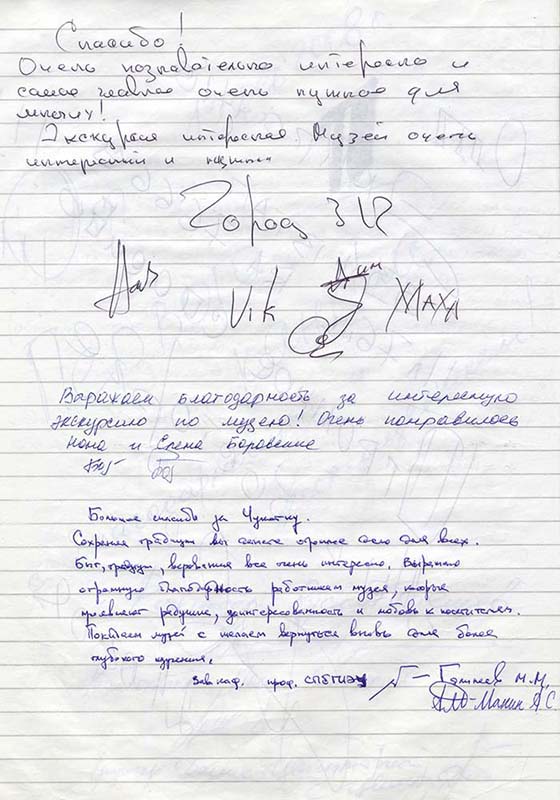 Спасибо!
Очень познавательно интересно и
самое главное очень нужное для
многих!
Экскурсия интересная. Музей очень
интересный и
Город 312
Vik Дим МАХА
Выражаем благодарность за интересную
экскурсию по музею! Очень понравилось
Нона и Елена Боровение
Большое спасибо за Чукотку.
Сохраняя традиции вы делаете огромное дело для всех.
Быт, традиции, верования все очень интересно. Выражаю
огромную благодарность работникам музея, которые
проявляют радушие, заинтересованность и любовь к посетителям.
Покидаем музей с желаем вернуться вновь для более
глубокого изучения.
Зав каф. проф. СПбГИЭУ М.М.
Манин А С